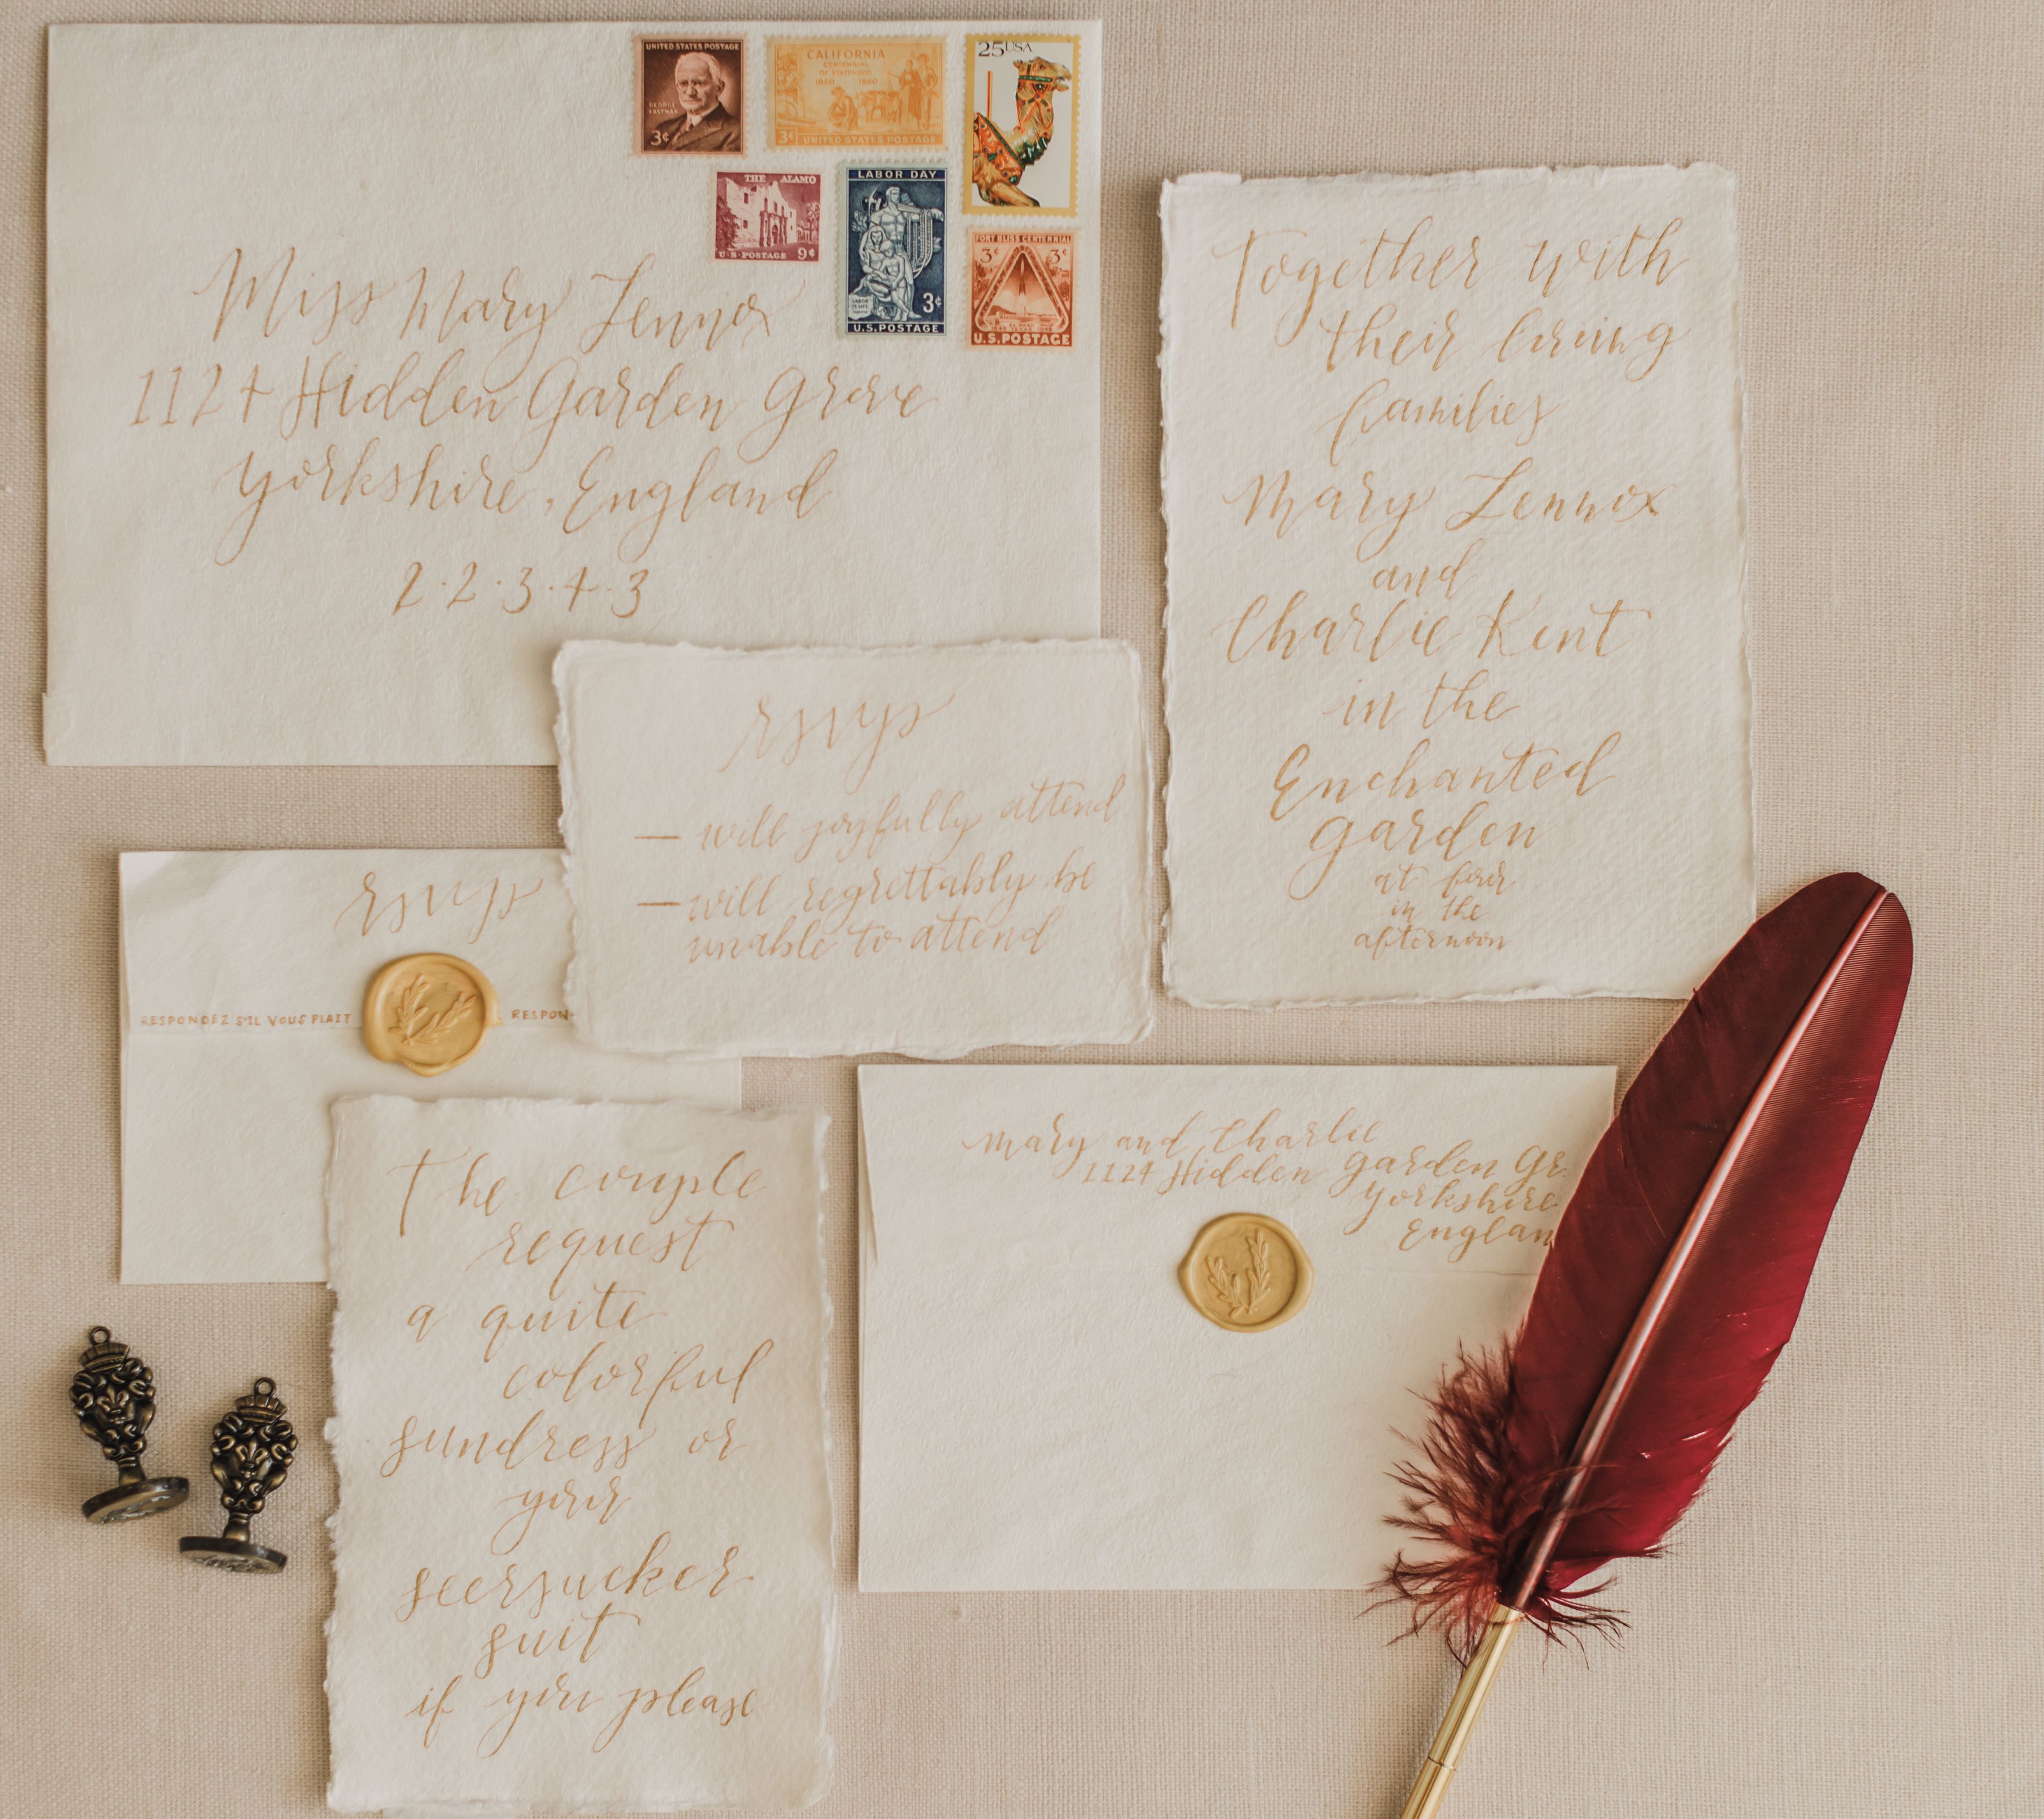 UNITED STATES POSTAGE
GEORGE
EASTMAN
3¢
CALIFORNIA
CENTENNIAL
OF STATEHOOD
1850 1950
3¢ UNITED STATES POSTAGE
25USA
THE ALAMO
U.S. POSTAGE 9¢
LABOR DAY
LABOR
IS LIFE
3¢
U.S. POSTAGE
FORT BLISS CENTENNIAL
3¢ 3¢
U.S. POSTAGE
Miss Mary Lennox
1124 Hidden Garden Grove
Yorkshire, England
2·2·3·4·3
Together with
their loving
families
Mary Lennox
and
Charlie Kent
in the
Enchanted
Garden
at four
in the
afternoon
rsvps
— will joyfully attend
— will regrettably be
unable to attend
rsvps
RESPONDEZ S'IL VOUS PLAIT RESPON-
The couple
request
a quite
colorful
sundress or
your
seersucker
suit
if you please
Mary and Charlie
1124 Hidden Garden Gr.
Yorkshire
Englan